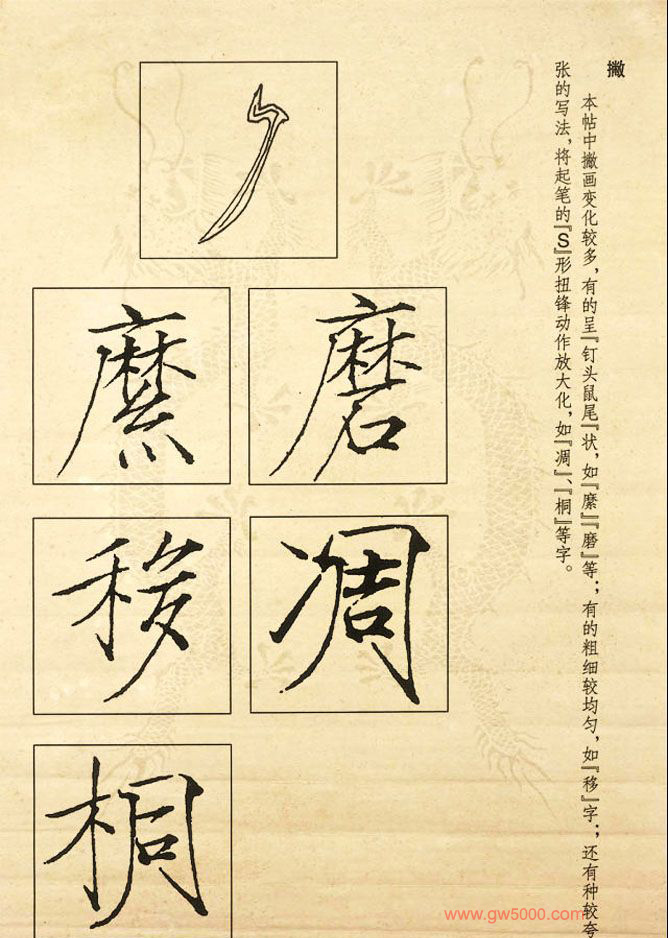 撇
本帖中撇画变化较多，有的呈『钉头鼠尾』状，如『縻』『磨』等；有的粗细较均匀，如『移』字；还有种较夸
张的写法，将起笔的『S』形扭锋动作放大化，如『凋』、『桐』等字。
磨
縻
凋
移
桐
www.gw5000.com